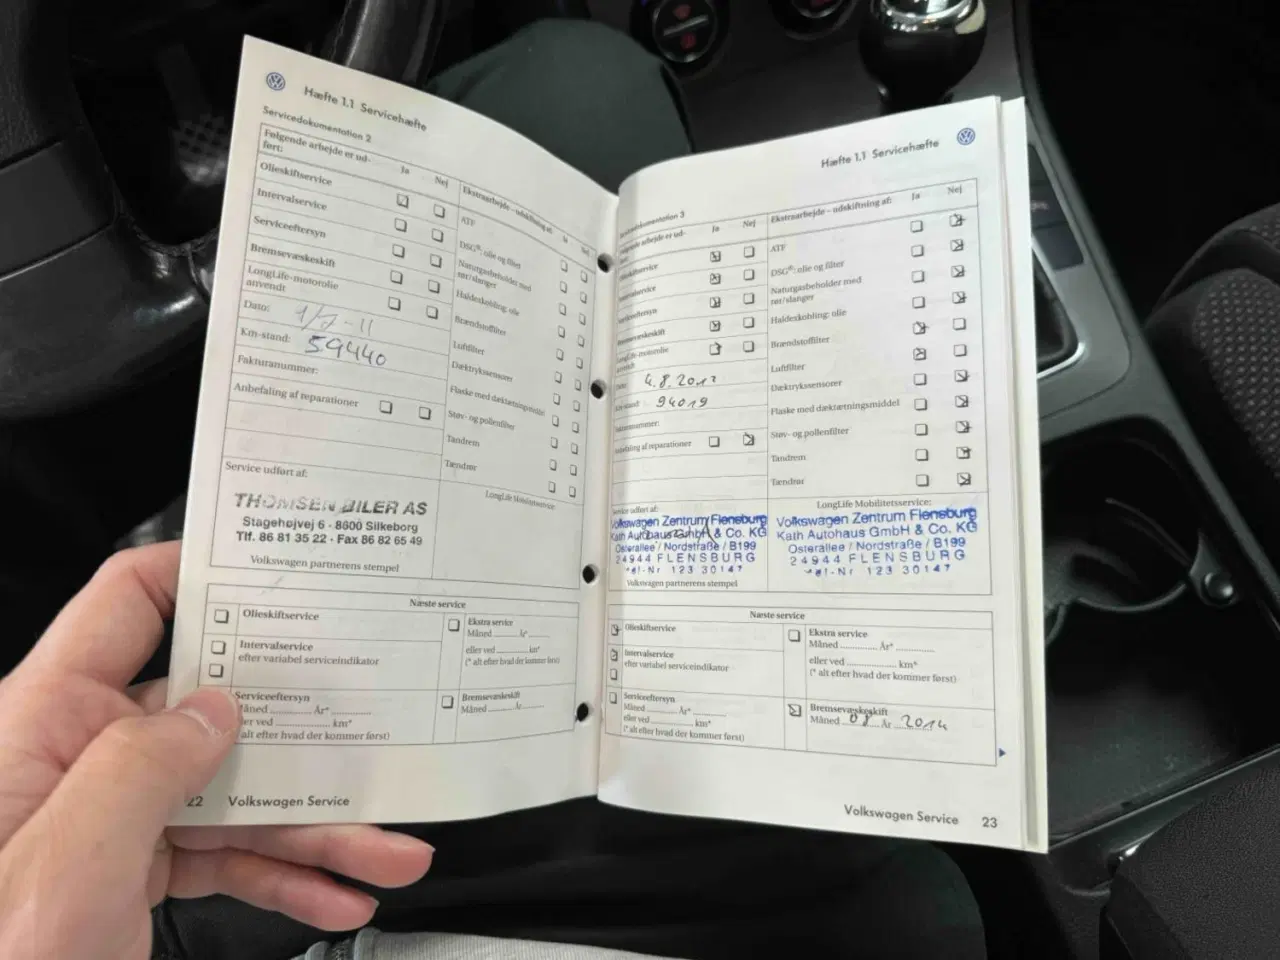 Hæfte 1.1 Servicehæfte
Servicedokumentation 2
Følgende arbejde er ud-
ført:
Ja
Nej
Olieskiftservice
Intervalservice
Serviceeftersyn
Bremsevæskeskift
LongLife-motorolie
anvendt
Dato: 1/7-11
Km-stand: 59440
Fakturanummer:
Anbefaling af reparationer
Ekstraarbejde - udskiftning af:
Ja
Nej
ATF
DSG®: olie og filter
Naturgasbeholder med
rør/slanger
Haldexkobling: olie
Brændstoffilter
Luftfilter
Dæktrykssensorer
Flaske med dæktætningsmiddel
Støv- og pollenfilter
Tandrem
Tændrør
Service udført af:
THOMSEN BILER AS
Stagehøjvej 6 - 8600 Silkeborg
Tlf. 86 81 35 22 - Fax 86 82 65 49
Volkswagen partnerens stempel
LongLife Mobilitetsservice:
Næste service
Olieskiftservice
Intervalservice
efter variabel serviceindikator
Serviceeftersyn
Måned .......... År* ..........
eller ved .......... km*
(* alt efter hvad der kommer først)
Ekstra service
Måned .......... År* ..........
eller ved .......... km*
(* alt efter hvad der kommer først)
Bremsevæskeskift
Måned .......... År ..........
22 Volkswagen Service
Hæfte 1.1 Servicehæfte
Servicedokumentation 3
Følgende arbejde er ud-
ført:
Ja
Nej
Olieskiftservice
Intervalservice
Serviceeftersyn
Bremsevæskeskift
LongLife-motorolie
anvendt
Dato: 4.8.2012
Km-stand: 94019
Fakturanummer:
Anbefaling af reparationer
Ekstraarbejde - udskiftning af:
Ja
Nej
ATF
DSG®: olie og filter
Naturgasbeholder med
rør/slanger
Haldexkobling: olie
Brændstoffilter
Luftfilter
Dæktrykssensorer
Flaske med dæktætningsmiddel
Støv- og pollenfilter
Tandrem
Tændrør
Service udført af:
Volkswagen Zentrum Flensburg
Kath Autohaus GmbH & Co. KG
Osterallee / Nordstraße / B199
24944 FLENSBURG
123 30147
Volkswagen partnerens stempel
LongLife Mobilitetsservice:
Volkswagen Zentrum Flensburg
Kath Autohaus GmbH & Co. KG
Osterallee / Nordstraße / B199
24944 FLENSBURG
123 30147
Næste service
Olieskiftservice
Intervalservice
efter variabel serviceindikator
Serviceeftersyn
Måned .......... År* ..........
eller ved .......... km*
(* alt efter hvad der kommer først)
Ekstra service
Måned .......... År* ..........
eller ved .......... km*
(* alt efter hvad der kommer først)
Bremsevæskeskift
Måned 08 År 2014
Volkswagen Service 23